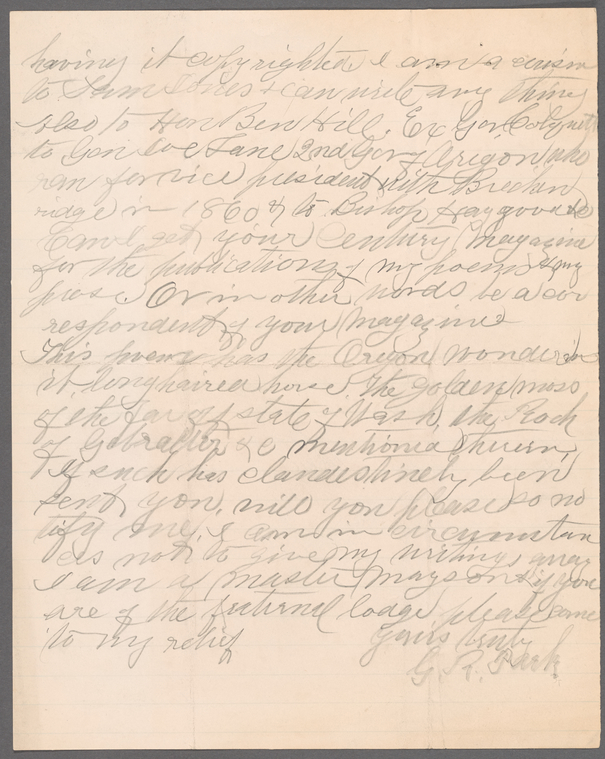 having it copyrighted I am a cusin
to Sam Jones & can write any thing
also to Hon Ben Hill. Ex Gov. Colquitt
to Gen Joe Lane 2nd Gov of Oregon who
ran for vice president with Brecken
ridge in 1860 & to Bishop Haygood
Can I get your Century Magazine
for the publication of my poems & my
prose. Or in other words be a cor
respondent of your Magazine
This poem has the Oregon wonder in
it, long haired horse. The golden moss
of the far off state of Wash, the Rock
of Gibralter &c mentioned therein,
If such has clandestinely been
sent you, will you please so no
tify me. I am in circumstan
ces not to give my writings away
I am a master mayson & if you
are of the fraternal lodge please come
to my relief
Yours truly
G. R. Park